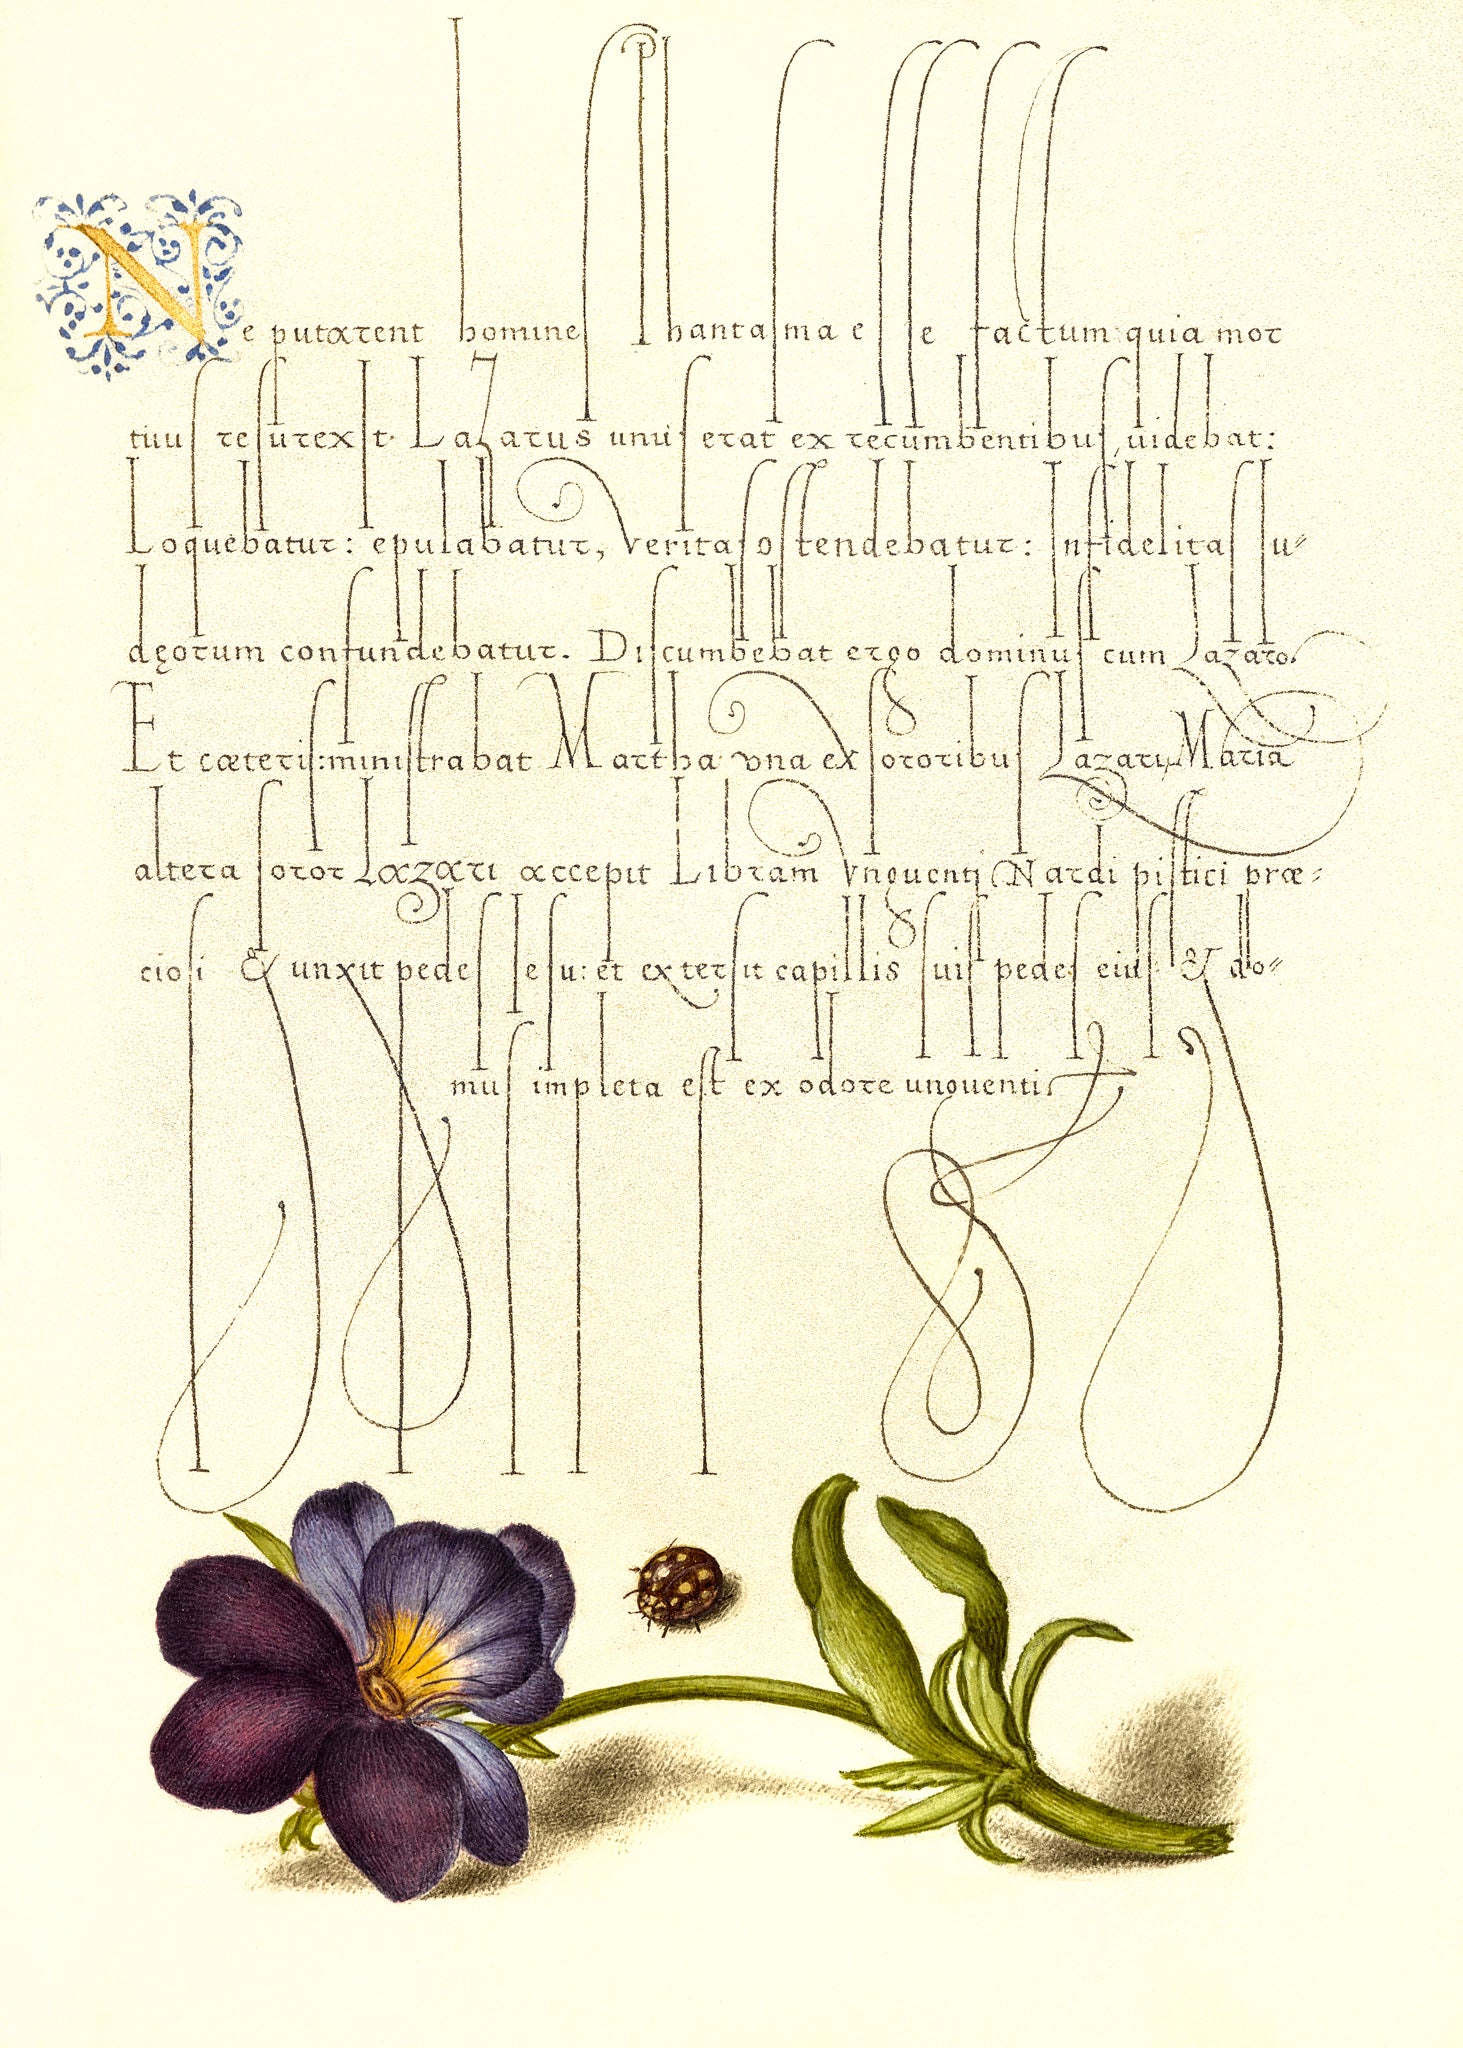 Ne putarent homines Phantasma esse factum: quia mor
tuus resurexit. Lazarus unus erat ex recumbentibus, uidebat:
Loquebatur: epulabatur, veritas ostendebatur: Infidelitas Iu=
dęorum confundebatur. Discumbebat ergo dominus cum Lazaro.
Et cæteris: ministrabat Martha vna ex sororibus Lazari, Maria
altera soror Lazari accepit Libram Vnguenti Nardi pistici præ=
ciosi & unxit pedes Iesu: et extersit capillis suis pedes eius: & do=
mus impleta est ex odore unguenti